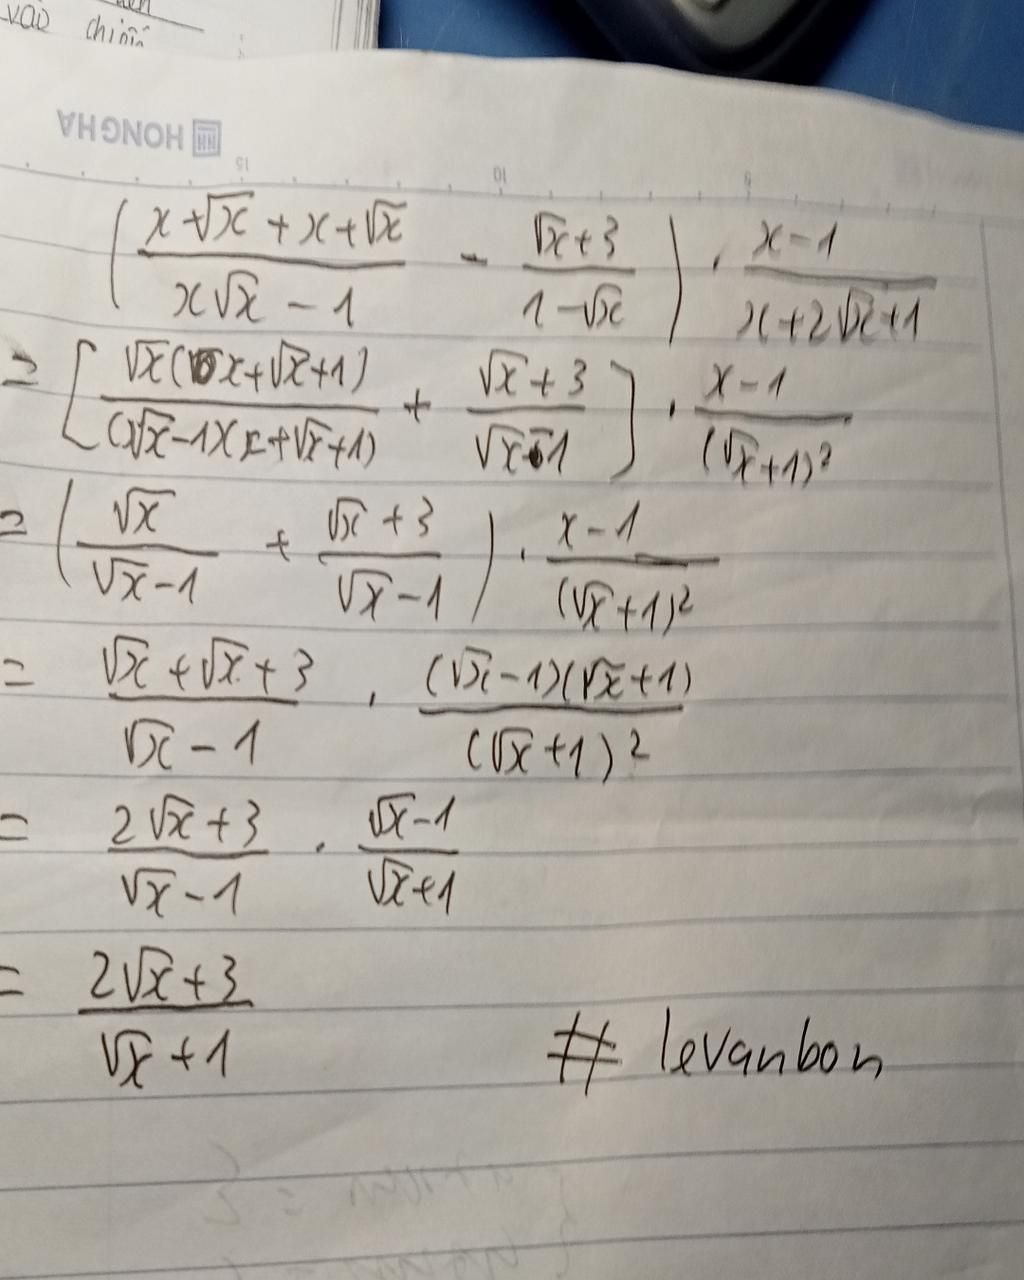 vào chính
HONGHA
15 10 5
( (x+√x + x + √x)/(x√x - 1) - (√x + 3)/(1 - √x) ) . (x - 1)/(x + 2√x + 1)
= [ √x(x + √x + 1)/((√x - 1)(x + √x + 1)) + (√x + 3)/(√x - 1) ] . (x - 1)/(√x + 1)²
= ( √x/(√x - 1) + (√x + 3)/(√x - 1) ) . (x - 1)/(√x + 1)²
= (√x + √x + 3)/(√x - 1) . (√x - 1)(√x + 1)/(√x + 1)²
= (2√x + 3)/(√x - 1) . (√x - 1)/(√x + 1)
= (2√x + 3)/(√x + 1)
# levanbon